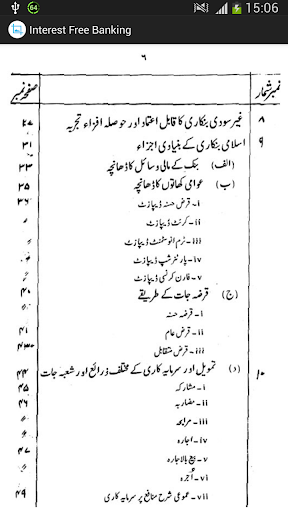 64
15:06
Interest Free Banking
۶
نمبر شمار صفحہ نمبر
۸ غیر سودی بنکاری کا قابل اعتماد اور حوصلہ افزاء تجزیہ ۲۷
۹ اسلامی بنکاری کے بنیادی اجزاء ۳۱
(الف) بنک کے مالی وسائل کا ڈھانچہ ۳۳
(ب) عوامی کھاتوں کا ڈھانچہ ۳۵
i - قرض حسنہ ڈیپازٹ ۳۶
ii - کرنٹ ڈیپازٹ 〃
iii - ٹرم انوسٹمنٹ ڈیپازٹ 〃
iv - پارٹنرشپ ڈیپازٹ 〃
v - فارن کرنسی ڈیپازٹ 〃
(ج) قرضہ جات کے طریقے ۴۰
i - قرضہ حسنہ 〃
ii - قرض عام ۴۱
iii - قرض متقابل ۴۳
۱۰ (د) تمویل اور سرمایہ کاری کے مختلف ذرائع اور شعبہ جات ۴۴
i - مشارکہ ۴۵
ii - مضاربہ ۴۶
iii - مرابحہ 〃
iv - اجارہ ۴۷
v - بیع بالاجارہ 〃
vi - اُجرہ 〃
vii - عمومی شرح منافع پر سرمایہ کاری ۴۹